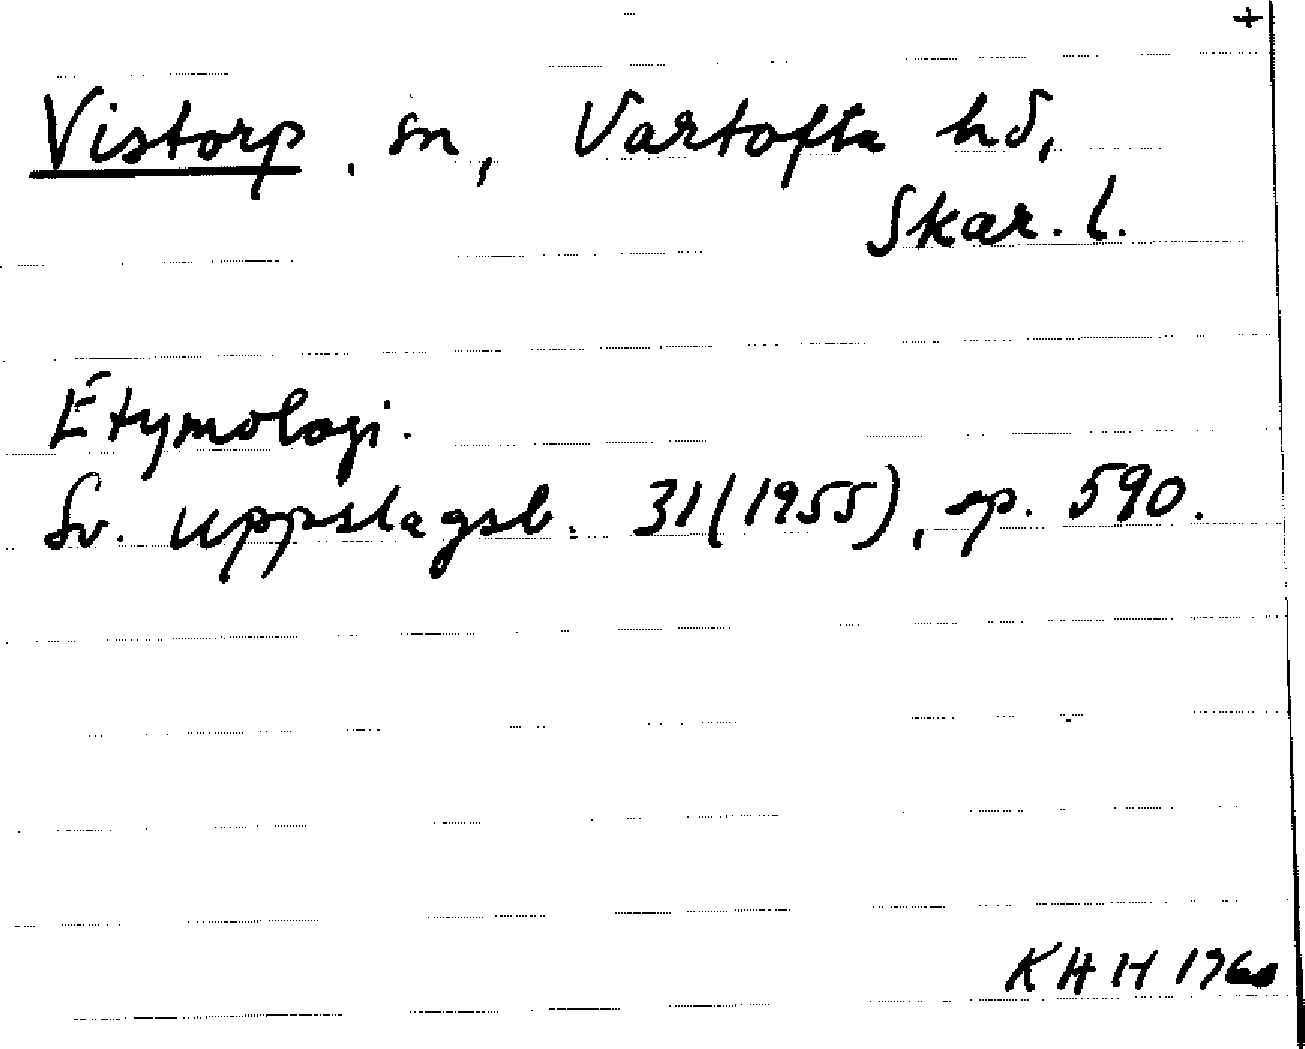 +
Vistorp, sn, Vartofta hd,
Skar. l.
Etymologi.
Sv. uppslagsb. 31 (1955), sp. 590.
KHH 1960